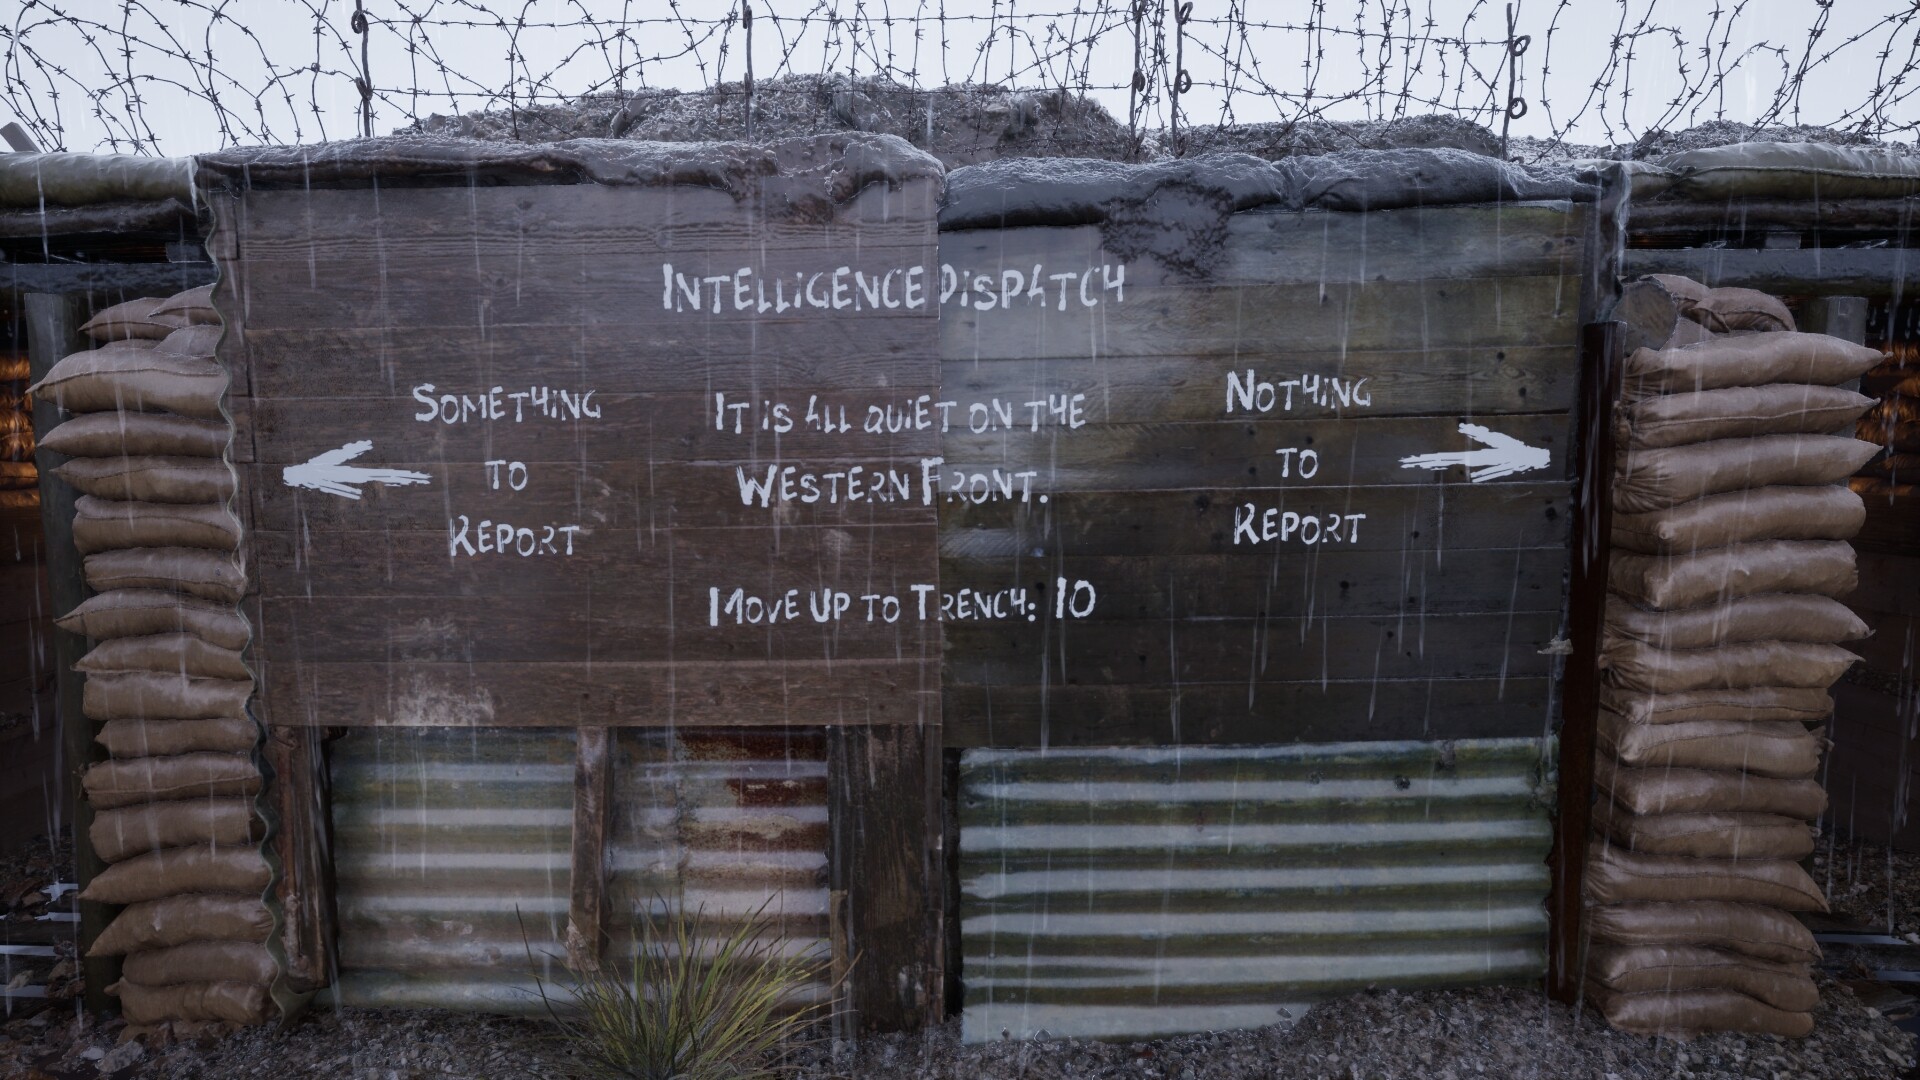 INTELLIGENCE DISPATCH
SOMETHING
TO
REPORT
IT IS ALL QUIET ON THE
WESTERN FRONT.
MOVE UP TO TRENCH: 10
NOTHING
TO
REPORT